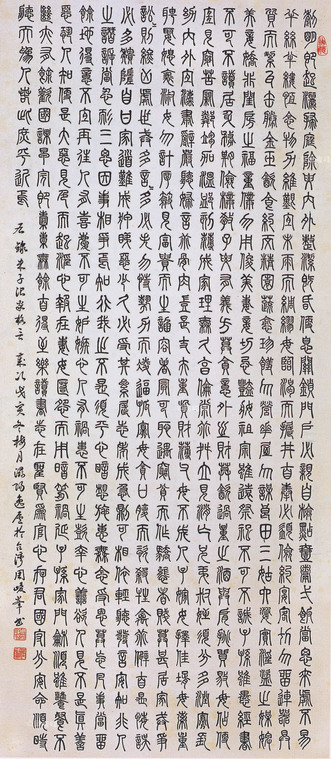 黎明即起灑掃庭除要內外整潔既昏便息關鎖門戶必親自檢點一粥一飯當思來處不易
半絲半縷恆念物力維艱宜未雨而綢繆毋臨渴而掘井自奉必須儉約宴客切勿留連器具
質而潔瓦缶勝金玉飲食約而精園蔬愈珍饈勿營華屋勿謀良田三姑六婆實淫盜之媒婢
美妾嬌非閨房之福童僕勿用俊美妻妾切忌豔妝祖宗雖遠祭祀不可不誠子孫雖愚經書
不可不讀居身務期儉樸教子要有義方勿貪意外之財勿飲過量之酒與肩挑貿易毋佔便
宜見貧苦親鄰須加溫恤刻薄成家理無久享倫常乖舛立見消亡兄弟叔姪須分多潤寡長
幼內外宜法肅辭嚴聽婦言乖骨肉豈是丈夫重資財薄父母不成人子嫁女擇佳婿毋索重
聘娶媳求淑女勿計厚奩見富貴而生諂容者最可恥遇貧窮而作驕態者賤莫甚居家戒爭
訟訟則終凶處世戒多言言多必失勿恃勢力而凌逼孤寡毋貪口腹而恣殺牲禽乖僻自是悔誤
必多頹惰自甘家道難成狎昵惡少久必受其累屈志老成急則可相依輕聽發言安知非人
之譖訴當忍耐三思因事相爭焉知非我之不是須平心暗想施惠無念受恩莫忘凡事當留
餘地得意不宜再往人有喜慶不可生妒嫉心人有禍患不可生喜幸心善欲人見不是真善
惡恐人知便是大惡見色而起淫心報在妻女匿怨而用暗箭禍延子孫家門和順雖饔飧不
繼亦有餘歡國課早完即囊橐無餘自得至樂讀書志在聖賢為官心存君國守分安命順時
聽天為人若此庶乎近焉 右錄朱子治家格言 歲次 於台灣周 峯書